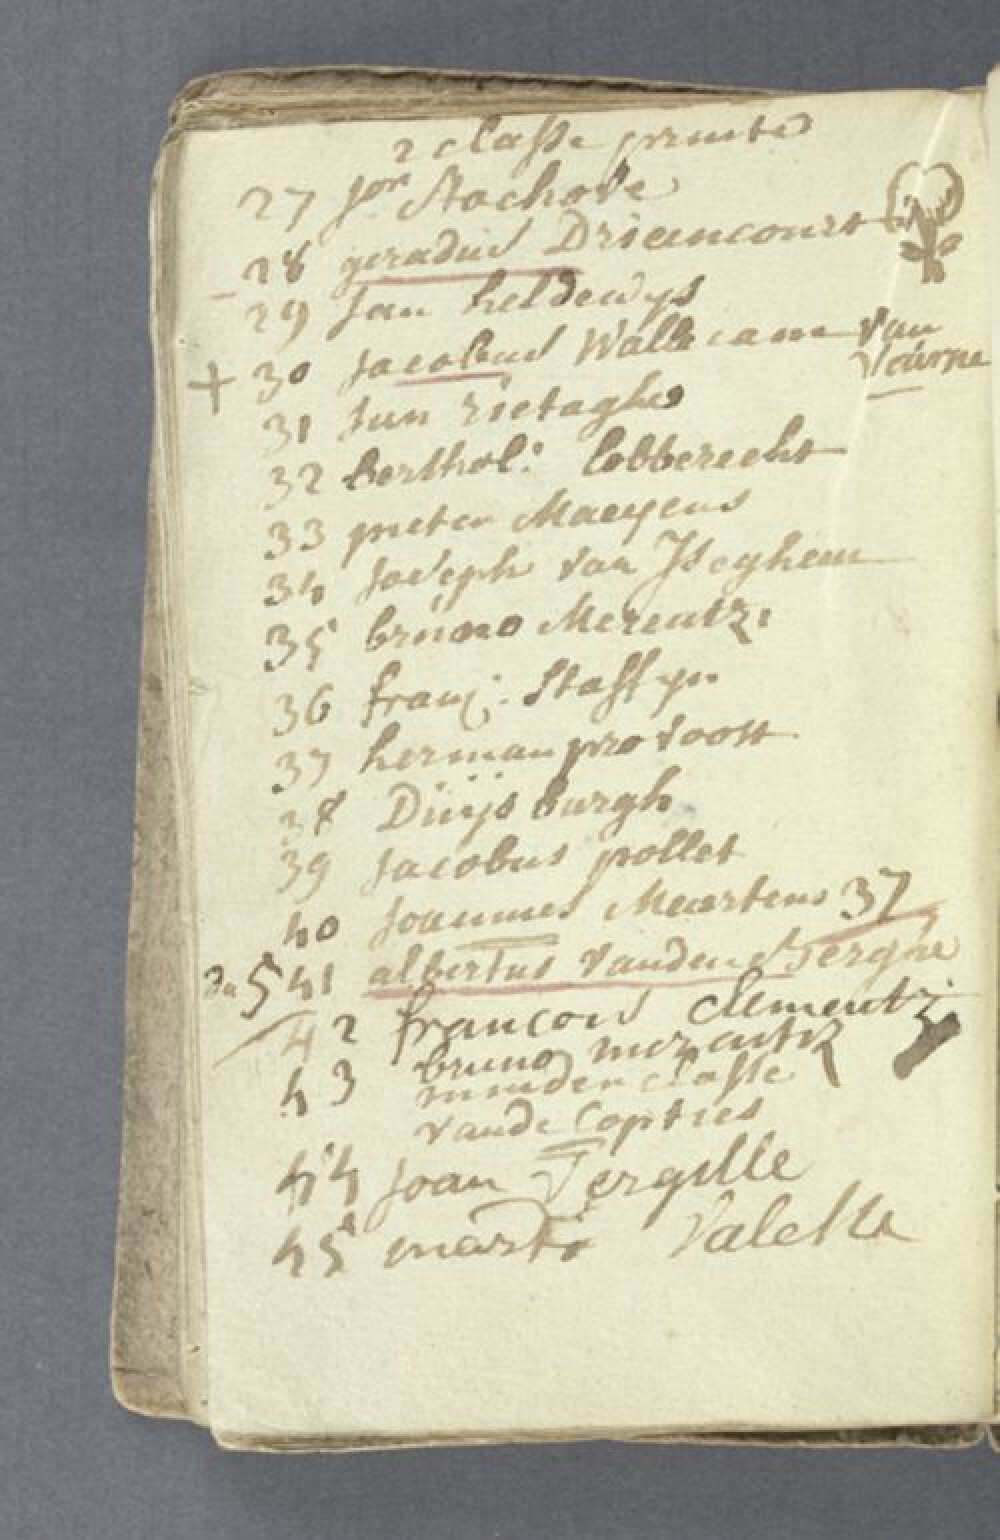 2 classe prente
27 Jor Stachove
28 geradus Driencourt
29 Jan heldewys
+ 30 Jacobus Wallecam van
Veurne
31 Jan rietaghe
32 berthol: lobberecht
33 pieter Maeyens
34 Joseph van Iseghem
35 bruno Merentz.
36 franc. Staffyn
37 herman provoost
38 Duÿsburgh
39 Jacobus pollet
40 Joannes Maertens 37
5 41 albertus vanden Berghe
42 francois clementz
43 bruno merentz
minder classe
vande Copties
44 Joan
45 Valette